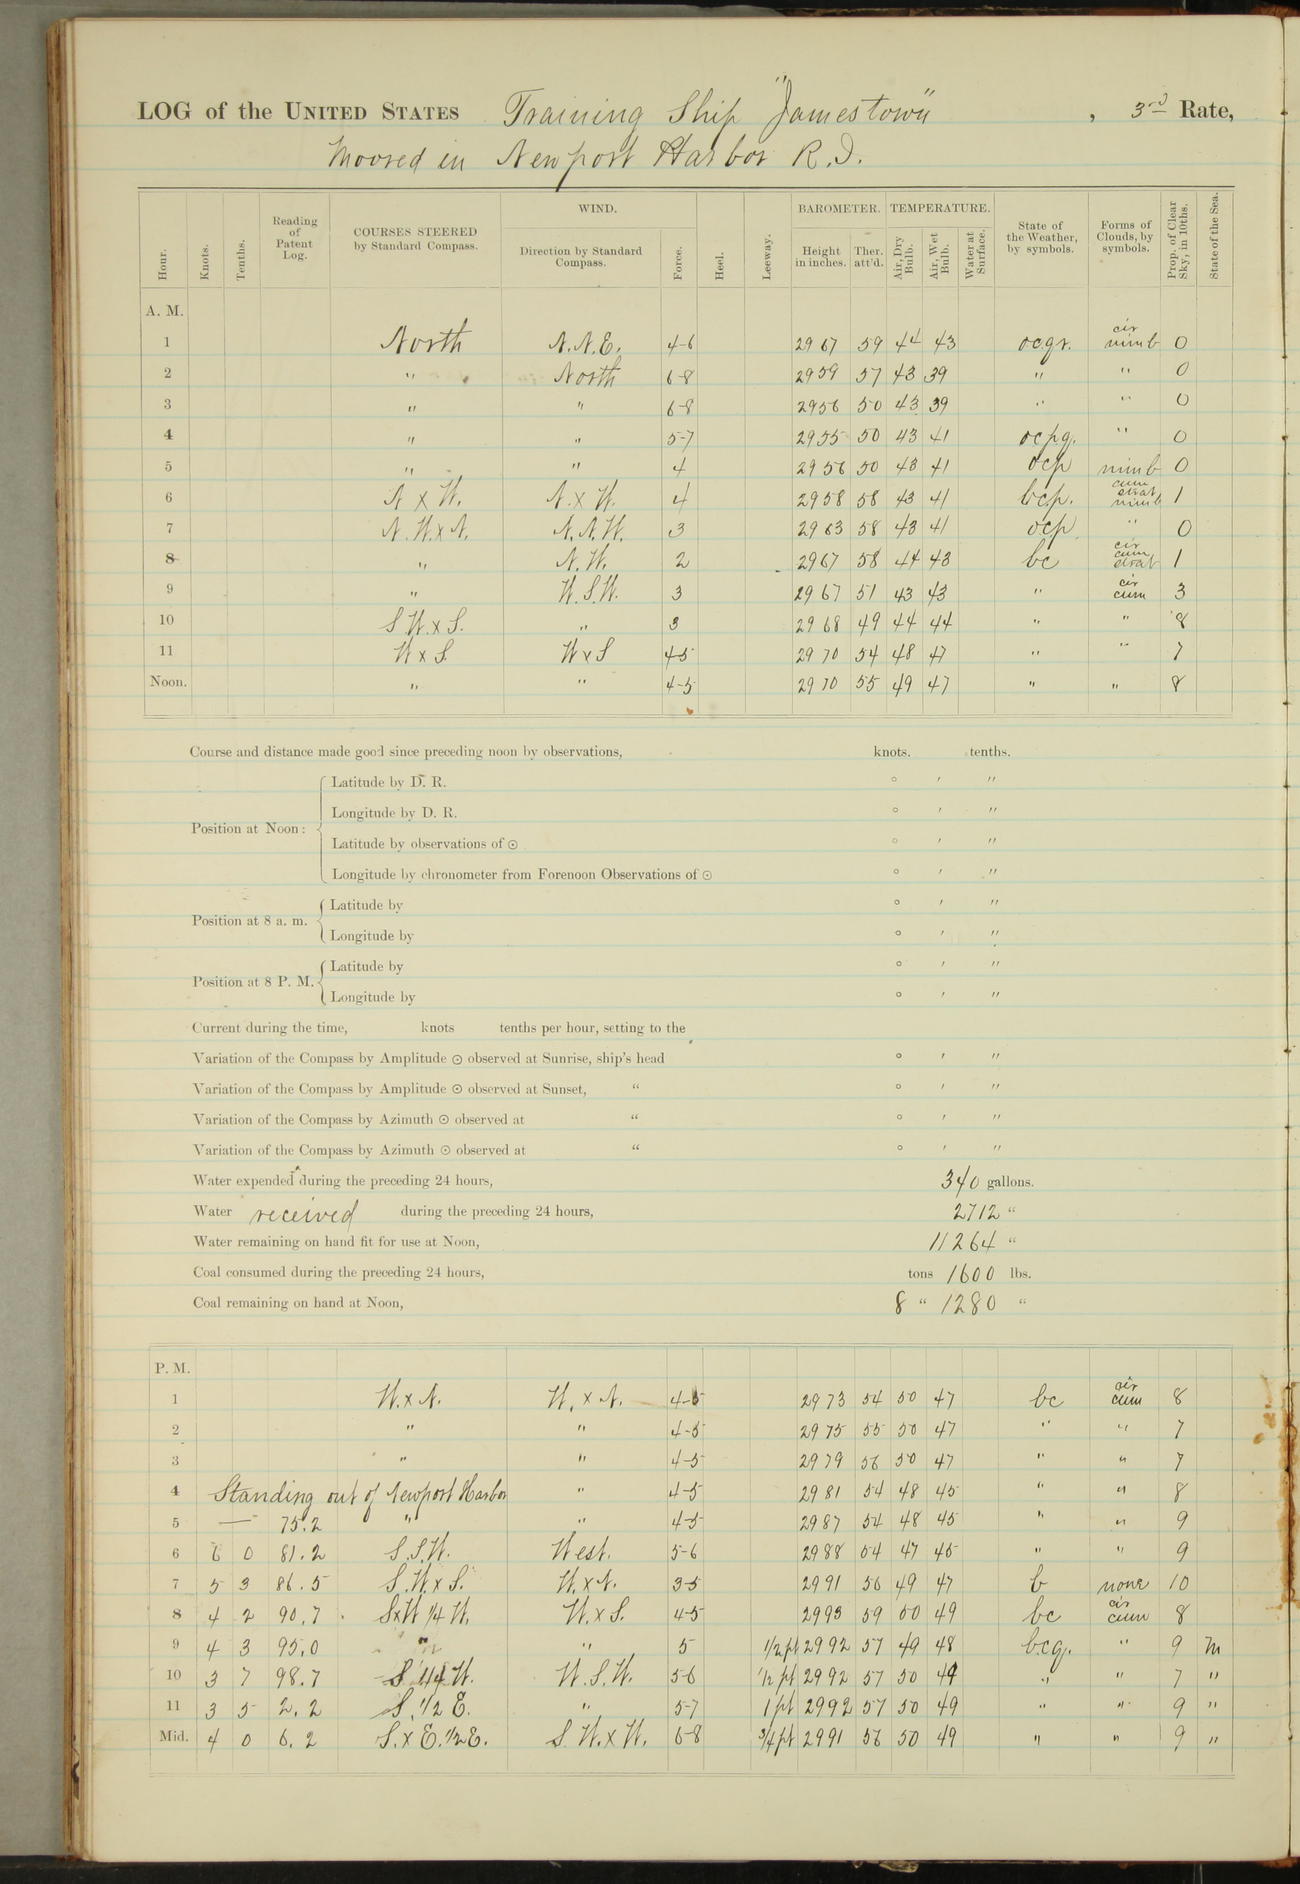 LOG of the UNITED STATES Training Ship "Jamestown", 3rd Rate,
Moored in Newport Harbor R.I.
Hour. Knots. Tenths. Reading of Patent Log. COURSES STEERED by Standard Compass. WIND. Direction by Standard Compass. Force. Heel. Leeway. BAROMETER. Height in inches. Ther. att'd. TEMPERATURE. Air, Dry Bulb. Air, Wet Bulb. Water at Surface. State of the Weather, by symbols. Forms of Clouds, by symbols. Prop. of Clear Sky, in 10ths. State of the Sea.
A. M.
1 North N.N.E. 4-6 29 67 59 44 43 ocqr. cir nimb 0
2 " North 6-8 29 59 57 43 39 " " 0
3 " " 6-8 29 56 50 43 39 " " 0
4 " " 5-7 29 55 50 43 41 ocpq. " 0
5 " " 4 29 56 50 43 41 ocp nimb 0
6 N x W. N. x W. 4 29 58 58 43 41 bcp. cum strat nimb 1
7 N. W. x N. N. N. W. 3 29 63 58 43 41 ocp " 0
8 " N. W. 2 29 67 58 44 43 bc cir cum strat 1
9 " W. S. W. 3 29 67 51 43 43 " cir cum 3
10 S W. x S. " 3 29 68 49 44 44 " " 8
11 W x S. W x S 4-5 29 70 54 48 47 " " 7
Noon. " " 4-5 29 70 55 49 47 " " 8
Course and distance made good since preceding noon by observations, knots. tenths.
Position at Noon: Latitude by D. R. ° ′ ″
Longitude by D. R. ° ′ ″
Latitude by observations of ⊙ ° ′ ″
Longitude by chronometer from Forenoon Observations of ⊙ ° ′ ″
Position at 8 a. m. Latitude by ° ′ ″
Longitude by ° ′ ″
Position at 8 P. M. Latitude by ° ′ ″
Longitude by ° ′ ″
Current during the time, knots tenths per hour, setting to the
Variation of the Compass by Amplitude ⊙ observed at Sunrise, ship's head ° ′ ″
Variation of the Compass by Amplitude ⊙ observed at Sunset, " ° ′ ″
Variation of the Compass by Azimuth ⊙ observed at " ° ′ ″
Variation of the Compass by Azimuth ⊙ observed at " ° ′ ″
Water expended during the preceding 24 hours, 340 gallons.
Water received during the preceding 24 hours, 2712 "
Water remaining on hand fit for use at Noon, 11264 "
Coal consumed during the preceding 24 hours, tons 1600 lbs.
Coal remaining on hand at Noon, 8 " 1280 "
P. M.
1 W. x N. W. x N. 4-5 29 73 54 50 47 bc cir cum 8
2 " " 4-5 29 75 55 50 47 " " 7
3 " " 4-5 29 79 56 50 47 " " 7
4 Standing out of Newport Harbor " 4-5 29 81 54 48 45 " " 8
5 — 75.2 " " 4-5 29 87 54 48 45 " " 9
6 6 0 81.2 S. S. W. West. 5-6 29 88 54 47 45 " " 9
7 5 3 86.5 S. W. x S. W. x N. 3-5 29 91 56 49 47 b none 10
8 4 2 90.7 SxW 1/4 W. W. x S. 4-5 29 93 59 50 49 bc cir cum 8
9 4 3 95.0 " " 5 1/2 pt 29 92 57 49 48 bcq. " 9 m
10 3 7 98.7 S 1/4 W. W. S. W. 5-6 1/2 pt 29 92 57 50 49 " " 7 "
11 3 5 2.2 S. 1/2 E. " 5-7 1 pt 29 92 57 50 49 " " 9 "
Mid. 4 0 6.2 S. x E. 1/2 E. S. W. x W. 6-8 3/4 pt 29 91 56 50 49 " " 9 "